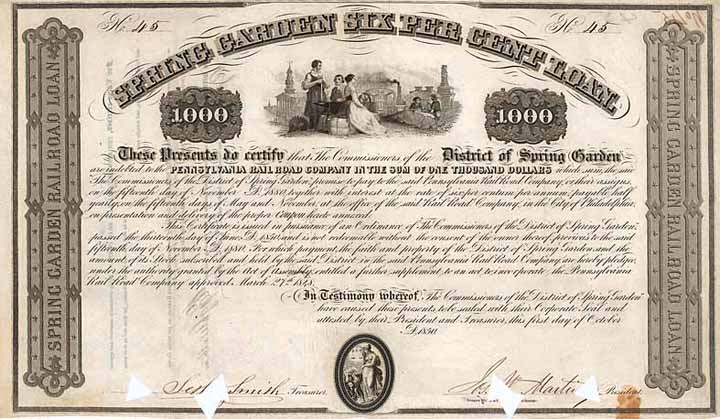 No. 45
No. 45
SPRING GARDEN SIX PER CENT LOAN.
1000
1000
SPRING GARDEN RAILROAD LOAN
SPRING GARDEN RAILROAD LOAN
These Presents do certify that The Commissioners of the District of Spring Garden
are indebted to the PENNSYLVANIA RAIL ROAD COMPANY IN THE SUM OF ONE THOUSAND DOLLARS which sum, the said
The Commissioners of the District of Spring Garden, promise to pay to the said Pennsylvania Rail Road Company, or their assigns,
on the fifteenth day of November A.D. 1880, together with interest at the rate of six per centum per annum, payable half
yearly, on the fifteenth days of May and November, at the office of the said Rail Road Company, in the City of Philadelphia,
on presentation and delivery of the proper Coupon hereto annexed.
This Certificate is issued in pursuance of an Ordinance of The Commissioners of the District of Spring Garden,
passed the thirteenth day of June A.D. 1850, and is not redeemable without the consent of the owner thereof previous to the said
fifteenth day of November A.D. 1880. For which payment, the faith and property of the District of Spring Garden, and the
amount of its Stock subscribed and held by the said District in the said Pennsylvania Rail Road Company are hereby pledged,
under the authority granted by the Act of Assembly, entitled a further supplement to an act to incorporate the Pennsylvania
Rail Road Company approved March 27th 1848.
In Testimony whereof, The Commissioners of the District of Spring Garden
have caused these presents to be sealed with their Corporate Seal and
attested by their President and Treasurer, this first day of October
A.D. 1850.
Smith Treasurer.
President.